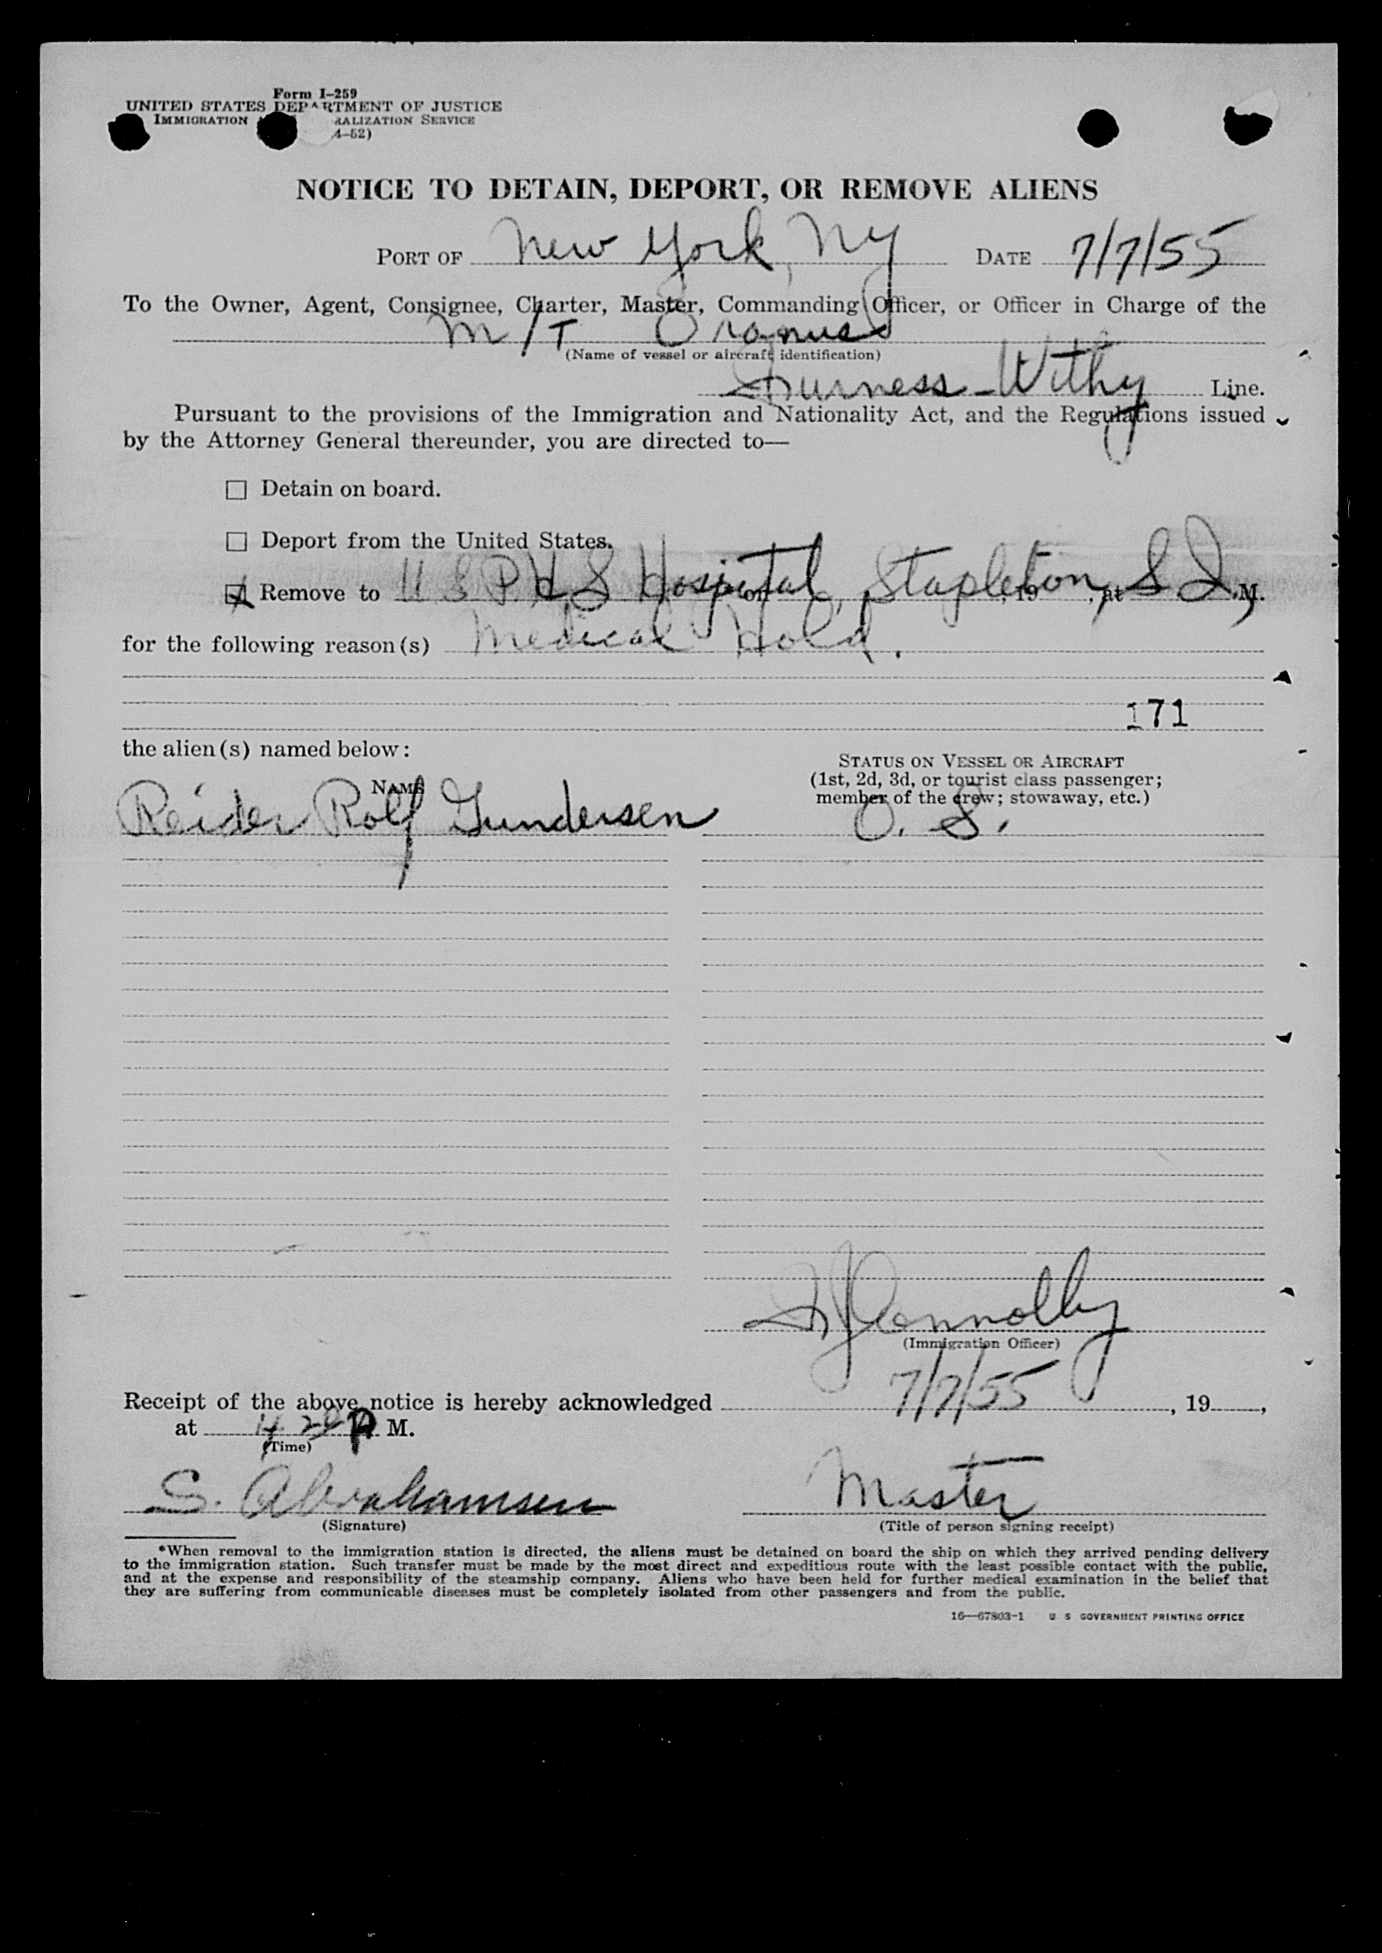 Form I-259
UNITED STATES DEPARTMENT OF JUSTICE
IMMIGRATION RALIZATION SERVICE
4-52)
NOTICE TO DETAIN, DEPORT, OR REMOVE ALIENS
PORT OF New York, NY DATE 7/7/55
To the Owner, Agent, Consignee, Charter, Master, Commanding Officer, or Officer in Charge of the
M/T
(Name of vessel or aircraft identification)
Furness-Withy Line.
Pursuant to the provisions of the Immigration and Nationality Act, and the Regulations issued
by the Attorney General thereunder, you are directed to—
☐ Detain on board.
☐ Deport from the United States.
☒ Remove to U.S.P.H.S Hospital, Stapleton, S I, on , 19 , at .M.
for the following reason(s) Medical Hold.
171
the alien(s) named below:
STATUS ON VESSEL OR AIRCRAFT
(1st, 2d, 3d, or tourist class passenger;
member of the crew; stowaway, etc.)
NAME
Reider Rolf Gundersen O. S.
Connolly
(Immigration Officer)
Receipt of the above notice is hereby acknowledged 7/7/55, 19 ,
at P M.
(Time)
S. Abrahamsen Master
(Signature) (Title of person signing receipt)
*When removal to the immigration station is directed, the aliens must be detained on board the ship on which they arrived pending delivery
to the immigration station. Such transfer must be made by the most direct and expeditious route with the least possible contact with the public,
and at the expense and responsibility of the steamship company. Aliens who have been held for further medical examination in the belief that
they are suffering from communicable diseases must be completely isolated from other passengers and from the public.
16—67803-1 U S GOVERNMENT PRINTING OFFICE